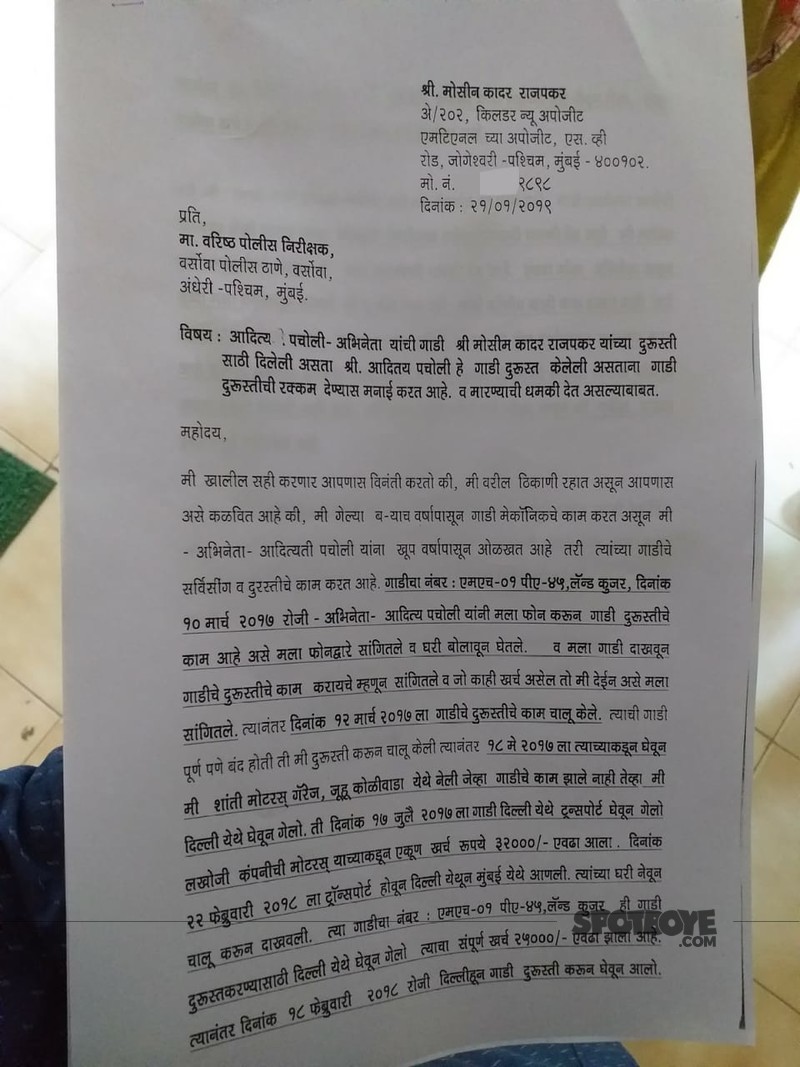 श्री. मोसीन कादर राजपकर
अे/२०२, किलडर न्यू अपोजीट
एमटिएनल च्या अपोजीट, एस. व्ही
रोड, जोगेश्वरी -पश्चिम, मुंबई - ४००१०२.
मो. नं. २८९८
दिनांक : २१/०१/२०१९
प्रति,
मा. वरिष्ठ पोलीस निरीक्षक,
वर्सोवा पोलीस ठाणे, वर्सोवा,
अंधेरी -पश्चिम, मुंबई.
विषय : आदित्य पचोली- अभिनेता यांची गाडी श्री मोसीम कादर राजपकर यांच्या दुरूस्ती
साठी दिलेली असता श्री. आदितय पचोली हे गाडी दुरूस्त केलेली असताना गाडी
दुरूस्तीची रक्कम देण्यास मनाई करत आहे. व मारण्याची धमकी देत असल्याबाबत.
महोदय,
मी खालील सही करणार आपणास विनंती करतो की, मी वरील ठिकाणी रहात असून आपणास
असे कळवित आहे की, मी गेल्या ब-याच वर्षापासून गाडी मेकॉनिकचे काम करत असून मी
- अभिनेता- आदित्यती पचोली यांना खूप वर्षापासून ओळखत आहे तरी त्यांच्या गाडीचे
सर्विसींग व दुरस्तीचे काम करत आहे. गाडीचा नंबर : एमएच-०१ पीए-४५,लॅन्ड कुजर, दिनांक
१० मार्च २०१७ रोजी - अभिनेता- आदित्य पचोली यांनी मला फोन करून गाडी दुरूस्तीचे
काम आहे असे मला फोनद्वारे सांगितले व घरी बोलावून घेतले. व मला गाडी दाखवून
गाडीचे दुरूस्तीचे काम करायचे म्हणून सांगितले व जो काही खर्च असेल तो मी देईन असे मला
सांगितले. त्यानंतर दिनांक १२ मार्च २०१७ ला गाडीचे दुरूस्तीचे काम चालू केले. त्याची गाडी
पूर्ण पणे बंद होती ती मी दुरूस्ती करून चालू केली त्यानंतर १८ मे २०१७ ला त्याच्याकडून घेवून
मी शांती मोटरस् गॅरेज, जूहू कोळीवाडा येथे नेली जेव्हा गाडीचे काम झाले नाही तेव्हा मी
दिल्ली येथे घेवून गेलो. ती दिनांक १७ जुलै २०१७ ला गाडी दिल्ली येथे ट्रन्सपोर्ट घेवून गेलो
लखोजी कंपनीची मोटरस् याच्याकडून एकूण खर्च रूपये ३२०००/- एवढा आला . दिनांक
२२ फेब्रुवारी २०१८ ला ट्रॉन्सपोर्ट होवून दिल्ली येथून मुंबई येथे आणली. त्यांच्या घरी नेवून
चालू करून दाखवली. त्या गाडीचा नंबर : एमएच-०१ पीए-४५,लॅन्ड कुजर ही गाडी
दुरूस्तकरण्यासाठी दिल्ली येथे घेवून गेलो त्याचा संपूर्ण खर्च २५०००/- एवढा झाला आहे.
त्यानंतर दिनांक १८ फेब्रुवारी २०१८ रोजी दिल्लीहून गाडी दुरूस्ती करून घेवून आलो.
SPOTBOYE
.COM